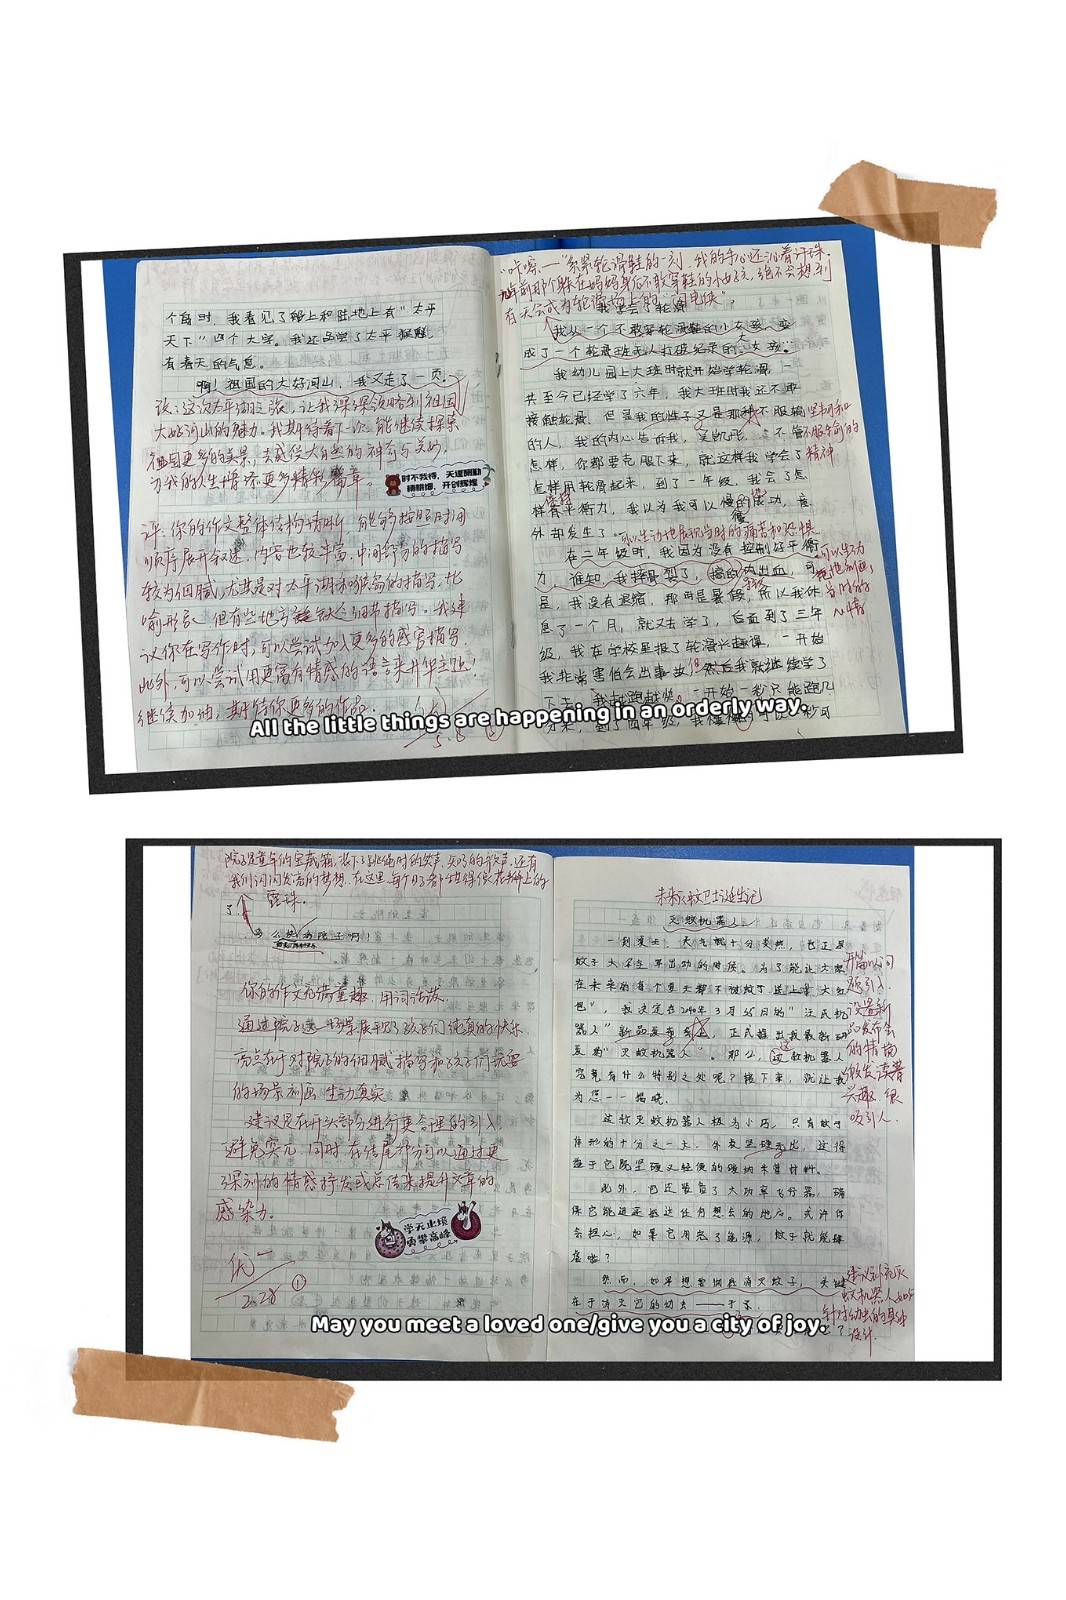 个角时，我看见了桥上和陆地上有“太平
天下”四个大字。我还品尝了太平猴魁
有春天的气息。
啊！祖国的大好河山，我又走了一页。
改：这次太平湖之旅，让我深深领略到祖国
大好河山的魅力。我期待着下一次能继续探索
祖国更多的美景，去感受大自然的神奇与美妙，
为我的人生增添更多精彩篇章。
时不我待，天道酬勤
开创辉煌
评：你的作文整体结构清晰，能够按照时间
顺序展开叙述，内容也较丰富，中间部分的描写
较为细腻，尤其是对太平湖和猴岛的描写，比
喻形象，但有些地方缺乏细节描写。我建
议你在写作时，可以尝试加入更多的感官描写，
此外，可以尝试用更富有情感的语言来升华主题！
继续加油，期待你更多的作品。
5.8
“咔嚓——”系紧轮滑鞋的一刻，我的手心还沁着汗珠，
年前那个躲在妈妈身后不敢穿鞋的小女孩，绝不会想到
有天会成为轮滑场上的“闪电侠”。
我学会了轮滑
我从一个不敢穿轮滑鞋的小女孩，变
成了一个轮滑班无人打破纪录的大女孩。
我幼儿园上大班时就开始学轮滑，一
共至今已经学了六年，我大班时我还不敢
接触轮滑，但是我的性子又是那种不服输
的人，我的内心告诉我，吴凯彤，不管
怎样，你都要克服下来，就这样我学会了
怎样用轮滑起来，到了一年级，我会了怎
样保持平衡力，我以为我可以慢慢的滑动，意
外却发生了。
可以生动地展现当时的痛苦和恐惧
在二年级时，我因为没有控制好平衡
力，谁知，我摔骨裂了，摔的流出血，可
是，我没有退缩，那时是暑假，所以我休
息了一个月，就又去学了，后面到了三年
级，我在学校里报了轮滑兴趣课，一开始
我非常害怕会出事故，但然后我就继续学了
下去，我越跑越快。一开始一秒只能跑几
坚韧和
不服输的
精神
All the little things are happening in an orderly way.
院子是童年的宝藏箱，装下了跳绳时的笑声、知了的歌声，还有
我们闪闪发亮的梦想。在这里，每个日子都甜得像花瓣上的
露珠。
了
你的作文充满童趣，用词活泼，
通过院子这一场景展现了孩子们纯真的快乐，
亮点在于对院子的细腻描写和孩子们玩耍
的场景刻画生动真实。
建议是在开头部分进行更合理的引入，
避免突兀，同时，在结尾部分可以通过更
深刻的情感抒发或总结来提升文章的
感染力。
学无止境
勇攀高峰
优-
2.28 ①
未来灭蚊卫士诞生记
灭蚊机器人
一到夏天，天气就十分炎热，也正是
蚊子大名生军出动的时候。为了能让大家
在未来的每个夏天都不被蚊子送上“大红
包”，我决定在2040年3月25月的“汪氏机
器人”新品发布会上，正式推出我最新研
发的“灭蚊机器人”。那么，这款机器人
究竟有什么特别之处呢？接下来，就让我
为您一一揭晓。
这款灭蚊机器人极为小巧，只有蚊子
体形的十分之一大，外表坚硬无比，这得
益于它既坚硬又轻便的碳纳米管材料。
此外，它还装置了大功率飞行器，确
保它能迅速抵达任何想去的地点。或许你
会担心，如果它用完了能源，蚊子就能肆
虐啦？
然而，如果想要彻底消灭蚊子，关键
在于消灭它的幼虫——孑孓。
开篇以问
题引入，
设置新
品发布会
的情境
激发读者
兴趣，很
吸引人。
建议补充灭
蚊机器人如何
针对幼虫的具体
设计.
May you meet a loved one/give you a city of joy.